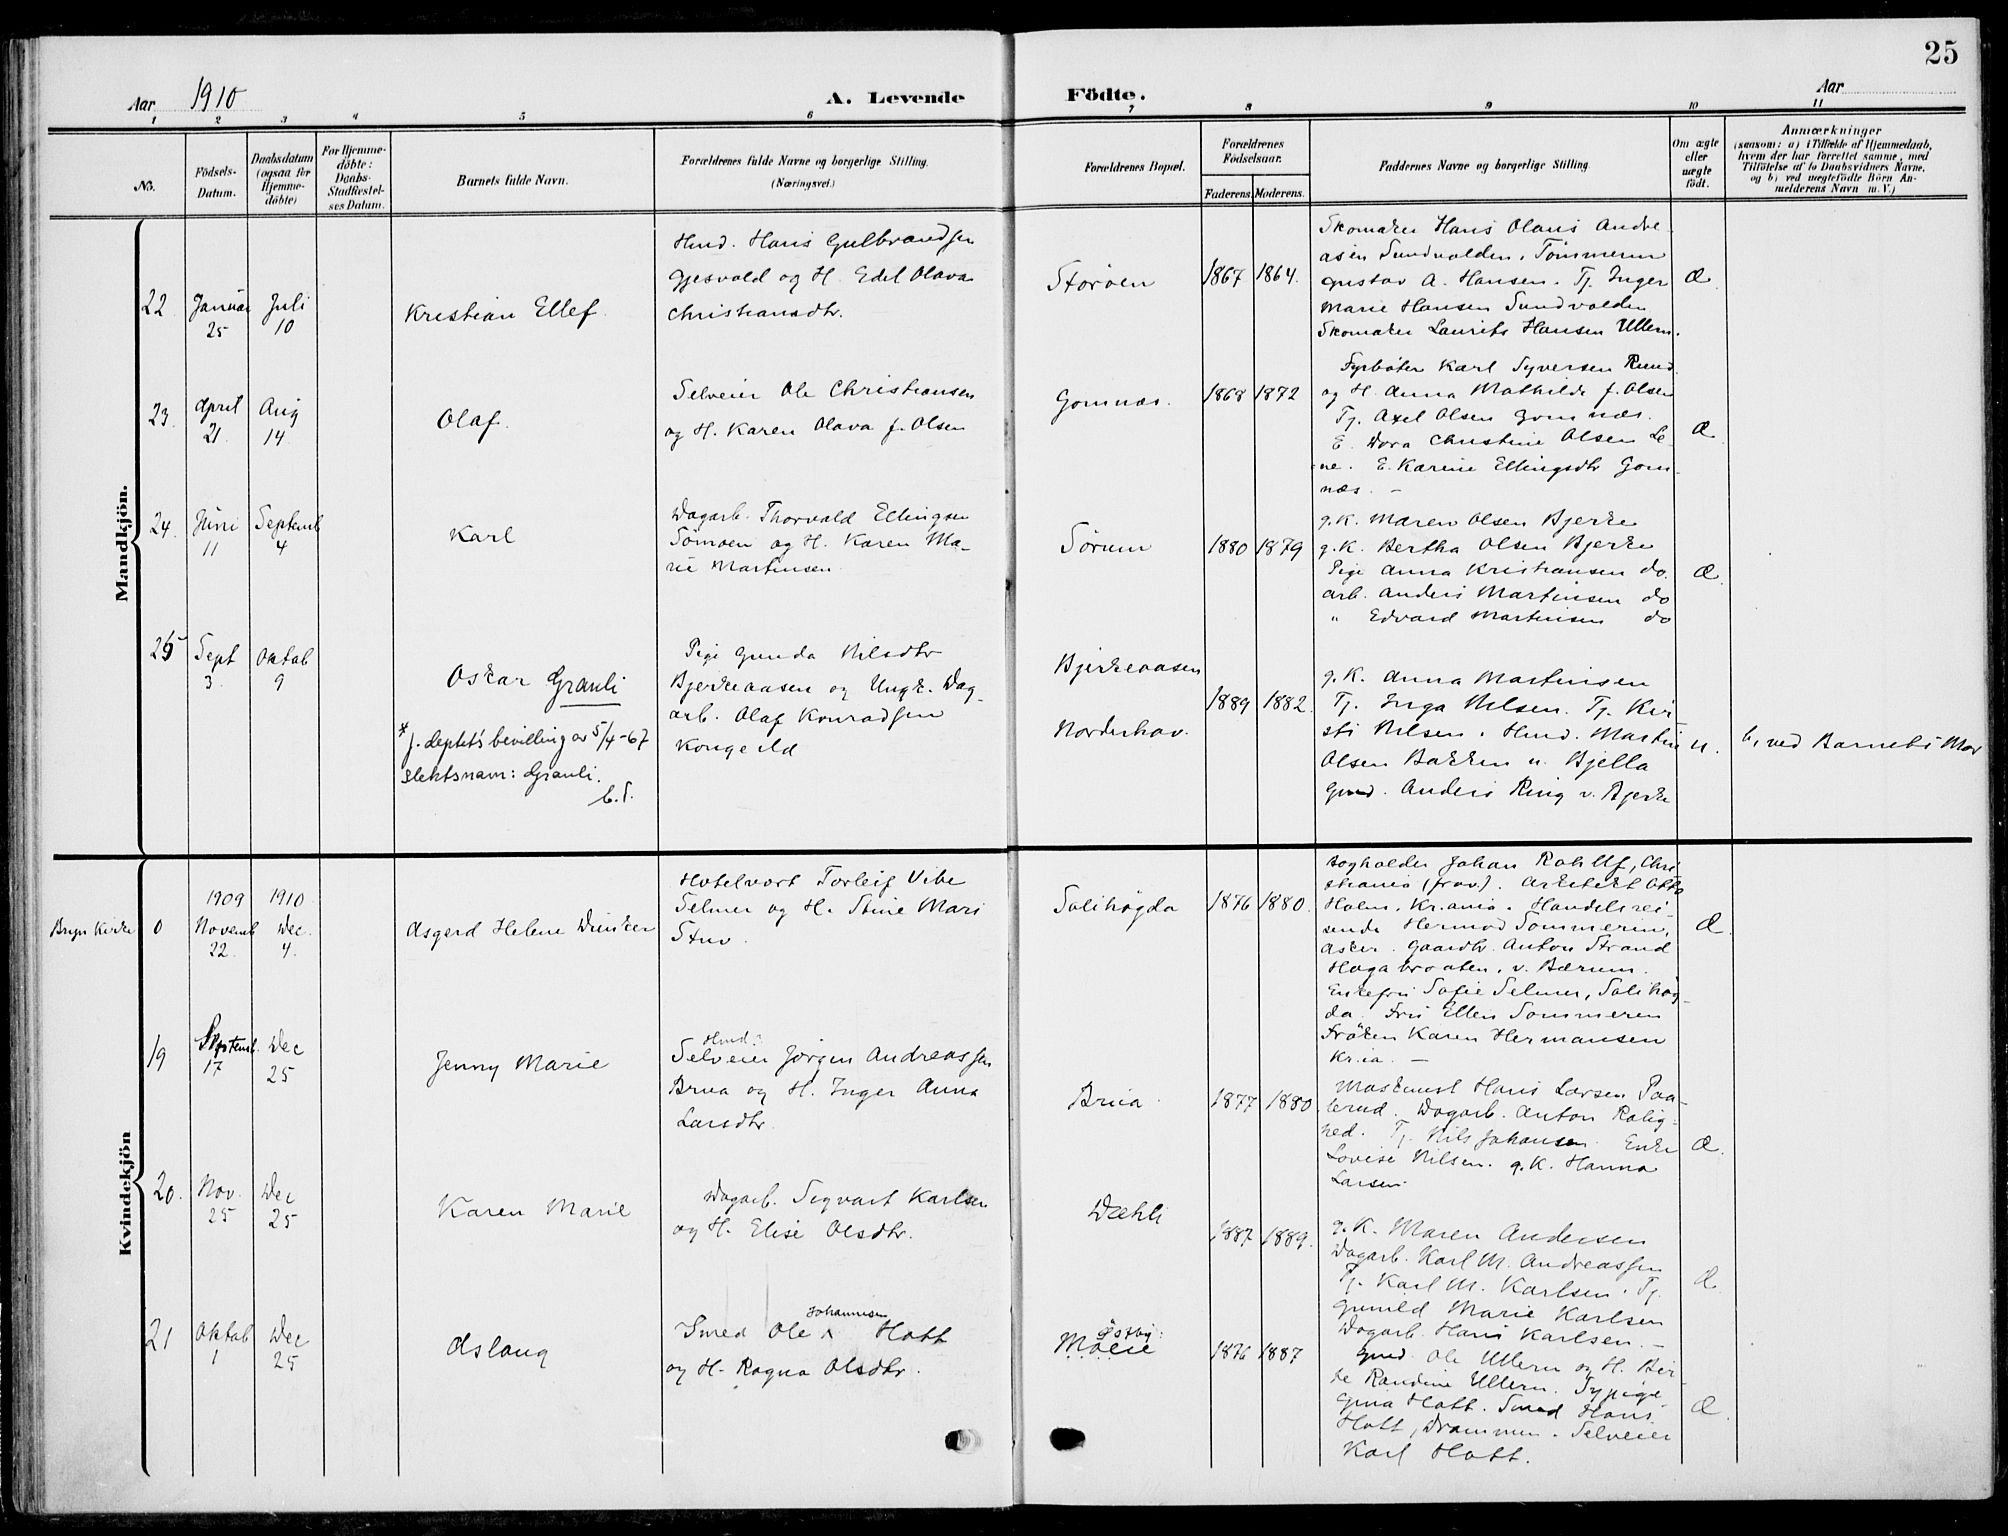 25
Aar 1910
A. Levende Födte.
Aar
1 2 3 4 5 6 7 8 9 10 11
No.
Födsels-
Datum.
Daabsdatum
(ogsaa for
Hjemme-
döbte)
For Hjemme-
döbte:
Daabs-
Stadfæstel-
ses Datum.
Barnets fulde Navn.
Forældrenes fulde Navne og borgerlige Stilling.
(Næringsvei.)
Forældrenes Bopæl.
Forældrenes
Födselsaar.
Faderens. Moderens.
Faddernes Navne og borgerlige Stilling.
Om ægte
eller
uægte
født.
Anmærkninger
(saasom: a) i Tilfælde af Hjemmedaab,
hvem der har forrettet samme, med
Tilföielse af to Daabsvidners Navne,
og b) ved uægtefödte Börn An-
melderens Navn m. V.)
Mandkjön.
22.
Januar
25
Juli
10
Kristian Ellef.
Hmd. Hans Gulbrandsen
Gjesvold og H. Edel Olava
Christiansdtr.
Storøen
1867 1864.
Skomaker Hans Olaus Andre-
asen Sundvolden. Tømmerm
Gustav A. Hansen. Tj. Inger
Marie Hansen Sundvolden
Skomaker Laurits Hansen Ullern.
Æ
23.
April
21.
Aug
14
Olaf.
Selveier Ole Christiansen
og H. Karen Olava f. Olsen
Gomnæs.
1868 1872
Fyrbøter Karl Syversen Rund
og H. Anna Mathilde f. Olsen
Tj. Axel Olsen Gomnæs.
E. Dora Christine Olsen Le-
ne. E. Karine Ellingsdtr Gom-
næs. –
Æ
24.
Juni
11
Septemb
4
Karl
Dagarb. Thorvald Ellingsen
Sømoen og H. Karen Ma-
rie Martinsen
Sørum
1880 1879
g.K. Maren Olsen Bjerke
g.K. Bertha Olsen Bjerke
Pige Anna Kristiansen do.
arb. Anders Martinsen do
" Edvard Martinsen do
Æ.
25
Sept
3.
Oktob
9
Oskar Granli
* f. deptets bevilling av 5/4-67
slektsnavn: Granli.
Pige Gunda Nilsdtr
Bjerkeaasen og Ungk. Dag-
arb. Olaf Konradsen
Kongeld
Bjerkeaasen
Norderhov.
1889 1882.
g.K. Anna Martinsen
Tj. Inga Nilsen. Tj. Kir-
sti Nilsen. Hmd. Martin
Olsen Bakken u. Bjella
Gmd. Anders Ring v. Bjerke
u.
b, ved Barnets Mor
Kvindekjön
Bryn Kirke
0
1909
Novemb
22.
1910
Dec.
4.
Asgerd Helene Dunker
Hotelvært Torleif Vibe
Selmer og H. Stine Mari
Stuv.
Solihøgda
1876 1880.
Bogholder Johan Rohlff, Chri-
stiania (frav.). Arkitekt Otto
Holm, Kr.ania. Handelsrei-
sende Hermod Sommerin,
Asker. Gaardbr. Anton Strand
Hagabraaten, v. Bærum.
Enkefru Sofie Selmer, Solihøg-
da. Fru Ellen Sommeren
Frøken Karen Hermansen
Kr.ia. –
Æ.
19
Septemb.
17
Dec
25
Jenny Marie
Hmd:
Selveier Jørgen Andreassen
Brua og H. Inger Anna
Larsdtr.
Brua
1877 1880
Maskmest Hans Larsen Paa-
lerud. Dagarb. Anton Rolig-
hed. Tj. Nils Johansen. Enke
Lovise Nilsen. g.K. Hanna
Larsen.
Æ.
20.
Nov.
25
Dec
25
Karen Marie
Dagarb. Sigvart Karlsen
og H. Elise Olsdtr.
Dæhli
1887 1889.
g.K. Maren Andersen
Dagarb. Karl M. Andreassen
Tj. Karl M. Karlsen. Tj.
Gunild Marie Karlsen
Dagarb. Hans Karlsen. –
Æ
21
Oktob
1
Dec
25
Aslaug
Johannisen
Smed Ole ^ Hott
og H. Ragna Olsdtr.
Østby:
Moeie
1876 1887
Gmd. Ole Ullern og H. Ber-
te Randine Ullern. Sypige
Gina Hott. Smed Hans
Hott, Drammen. Selveier
Karl Hott.
Æ.